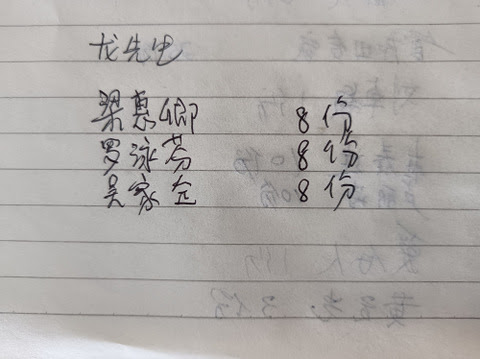 龙先生
梁惠卿 8份
罗泳芬 8份
吴家仝 8份